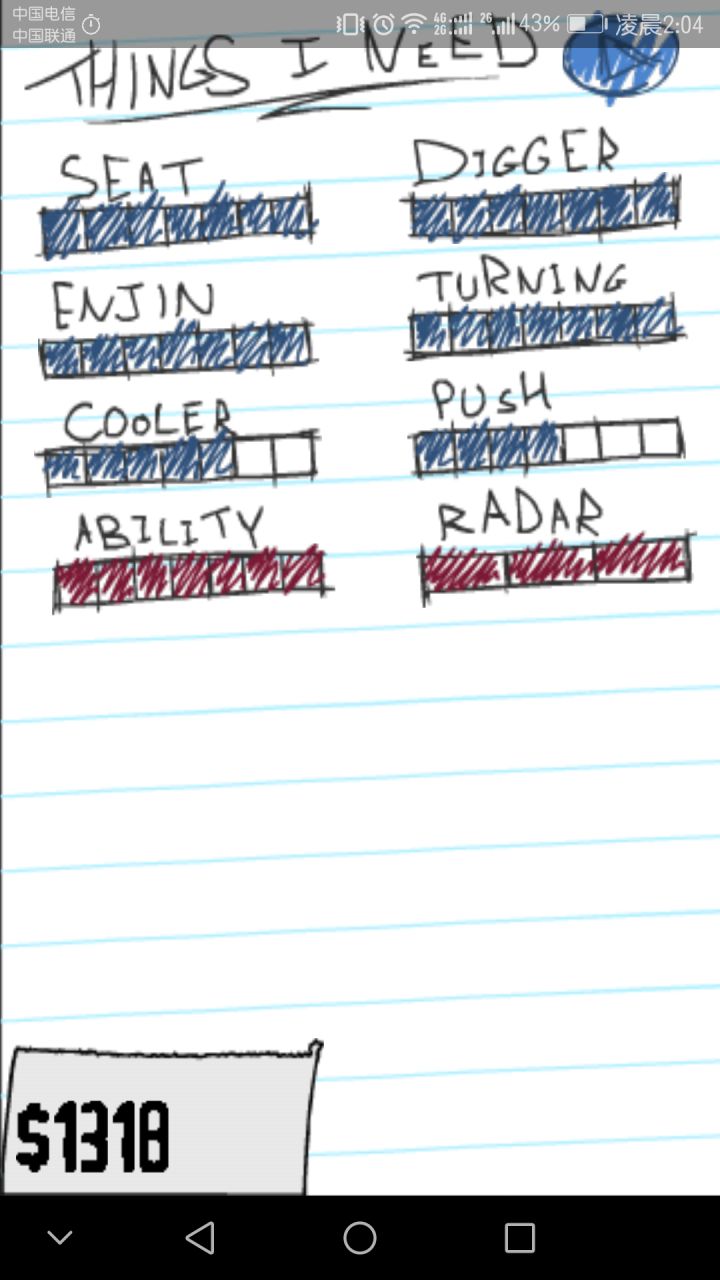 中国电信
中国联通
4G
2G
2G
43%
凌晨2:04
THINGS I NEED
SEAT
DIGGER
ENJIN
TURNING
COOLER
PUSH
ABILITY
RADAR
$1318